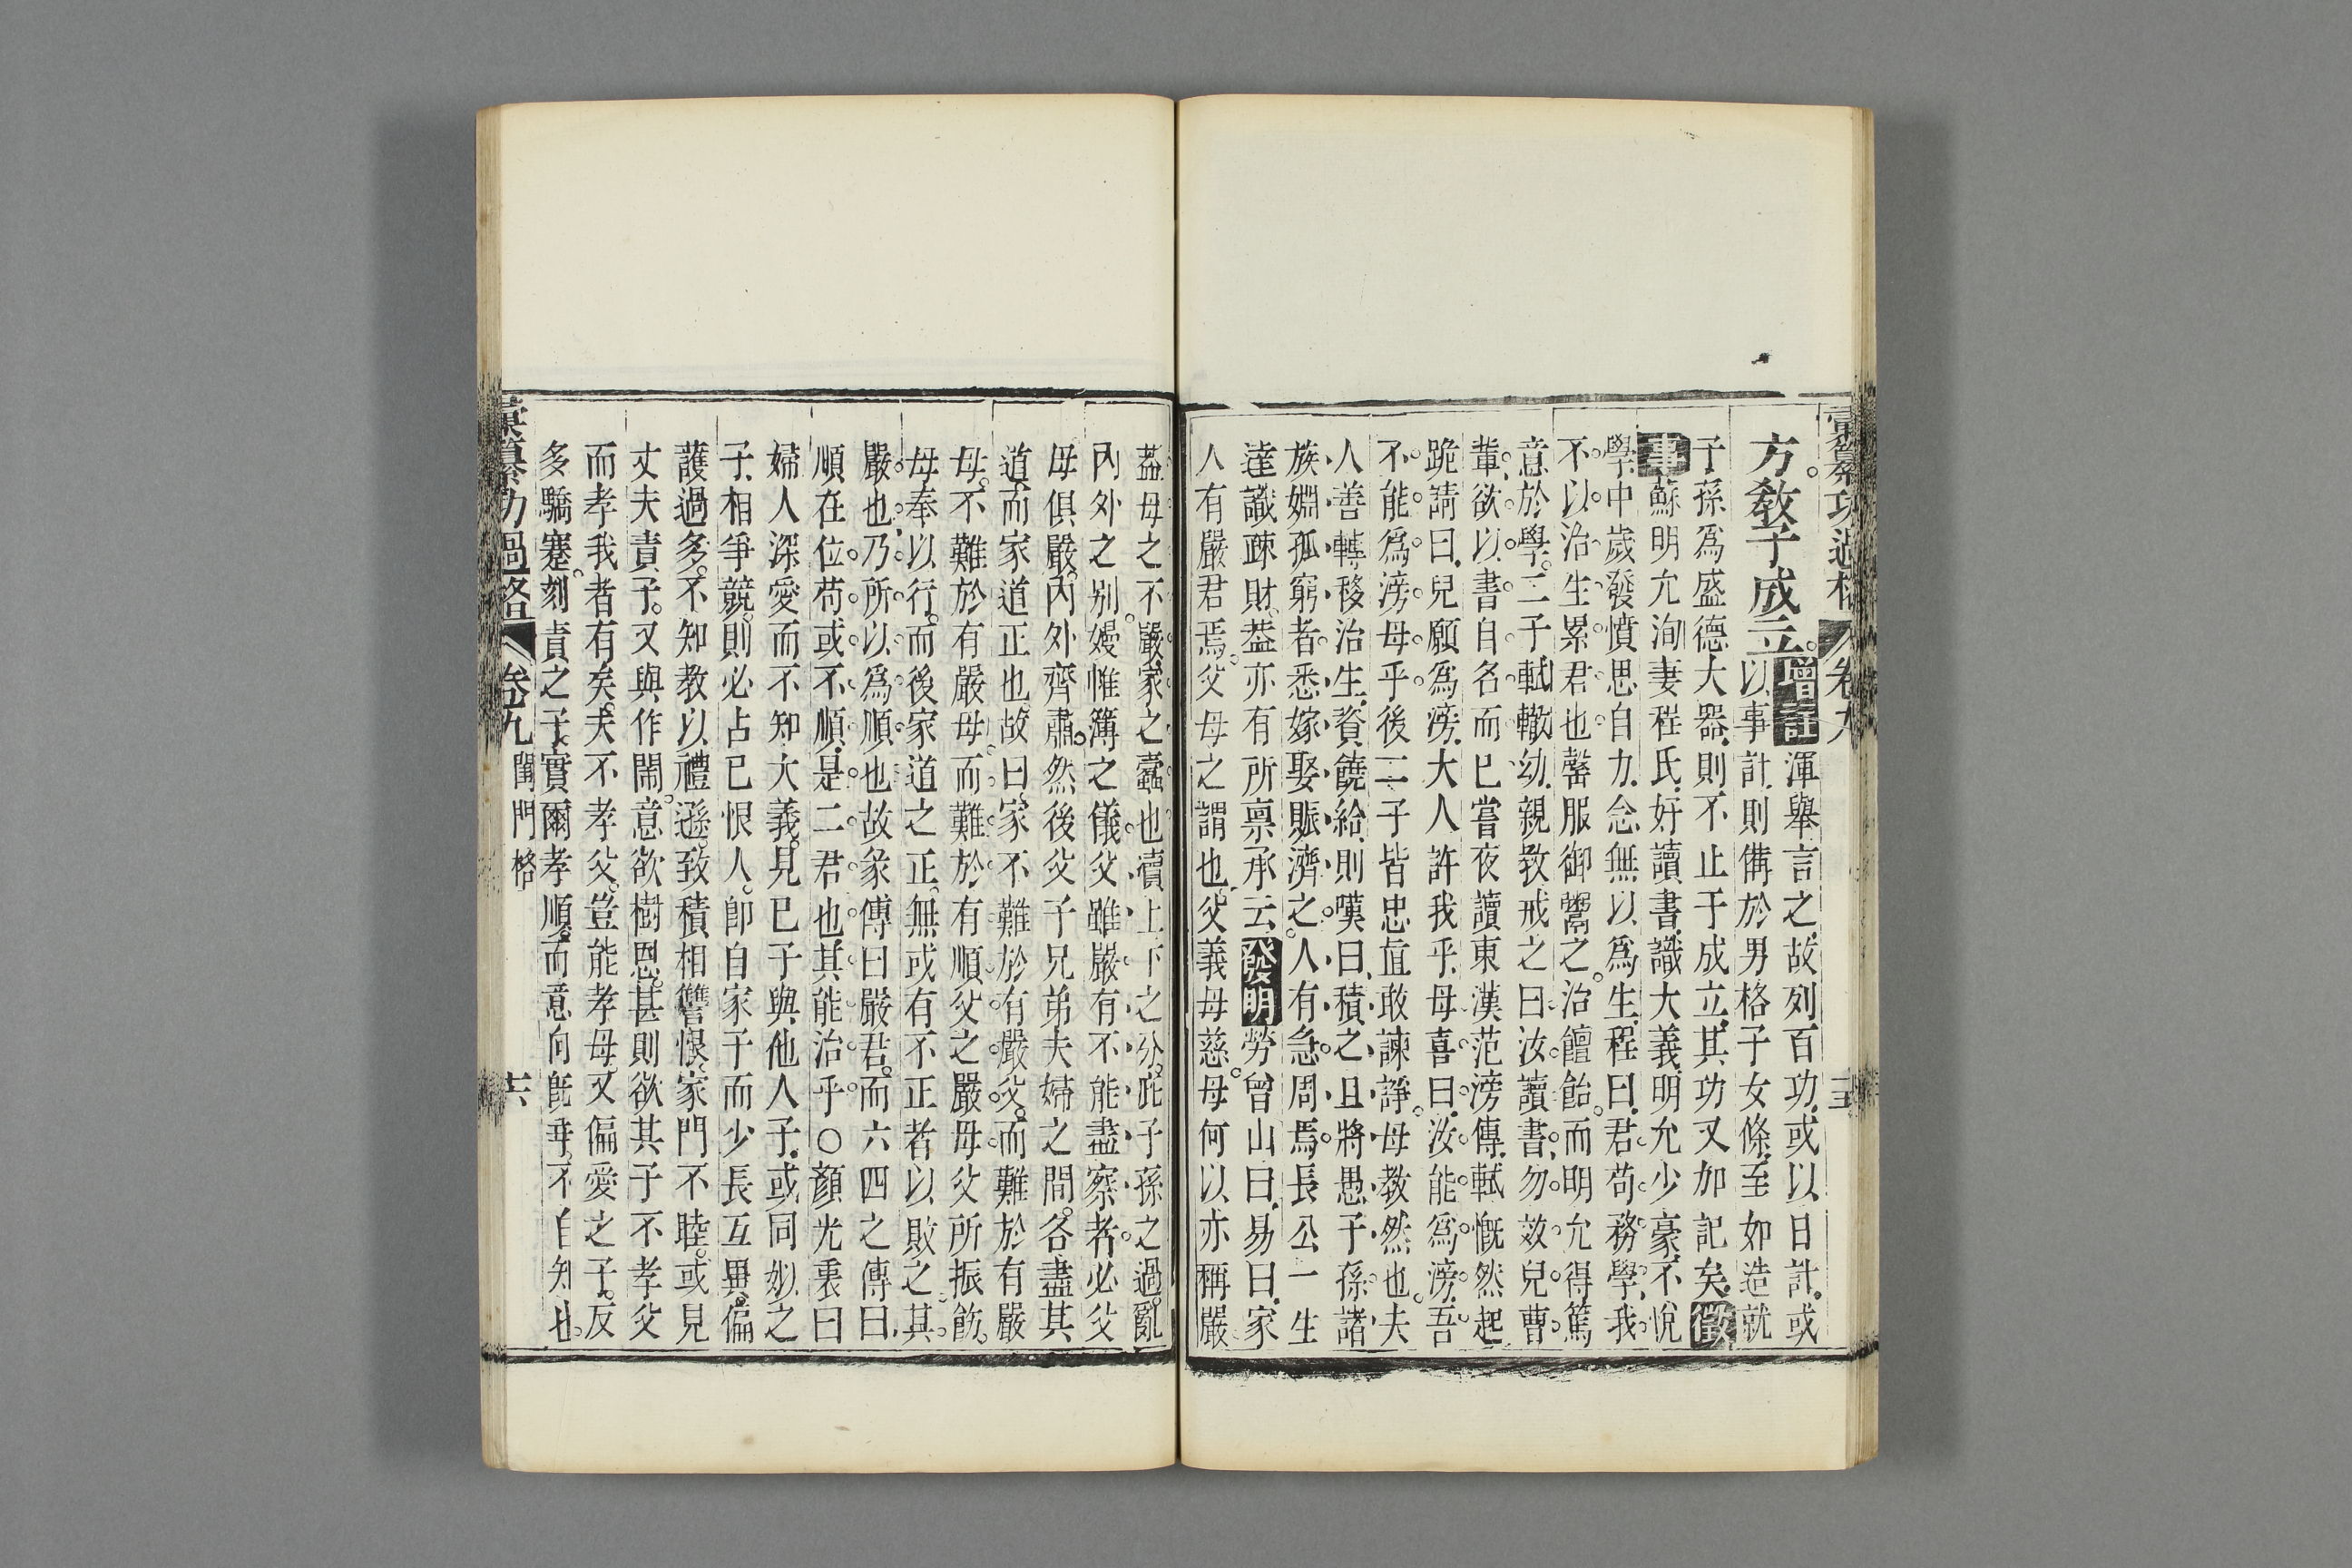 彙纂功過格 卷九
方教子成立。增註渾舉言之。故列百功。或以日計。或
以事計。則備於男格子女條。至如造就
子孫爲盛德大器。則不止于成立。其功又加記矣。徵
事蘇明允洵妻程氏。好讀書。識大義。明允少豪。不悅
學。中歲發憤思自力。念無以爲生。程曰。君苟務學。我
不以治生累君也。罄服御鬻之。治饘飴。而明允得篤
意於學。二子軾轍幼。親教戒之曰。汝讀書。勿效兒曹
輩。欲以書自名而已。嘗夜讀東漢范滂傳。軾慨然起
跪請曰。兒願爲滂。大人許我乎。母喜曰。汝能爲滂。吾
不能爲滂母乎。後二子皆忠直敢諫諍。母教然也。夫
人善轉移治生。資饒給。則嘆曰。積之且將愚子孫。諸
族婣孤窮者。悉嫁娶賑濟之。人有急。周焉。長公一生
達識疎財。葢亦有所禀承云。發明勞曾山曰。易曰。家
人有嚴君焉。父母之謂也。父義母慈。母何以亦稱嚴
葢母之不嚴。家之蠹也。瀆上下之分。庇子孫之過。亂
內外之别。嫚惟簿之儀。父雖嚴。有不能盡察者。必父
母俱嚴。內外齊肅。然後父子兄弟夫婦之間。各盡其
道。而家道正也。故曰。家不難於有嚴父。而難於有嚴
母。不難於有嚴母。而難於有順父之嚴母。父所振飭。
母奉以行。而後家道之正。無或有不正者以敗之。其
嚴也。乃所以爲順也。故彖傳曰嚴君。而六四之傳曰。
順在位。苟或不順。是二君也。其能治乎。○顏光衷曰
婦人深愛而不知大義。見已子與他人子。或同姒之
子相爭競。則必占已恨人。卽自家子而少長互異。偏
護過多。不知教以禮遜。致積相讐恨。家門不睦。或見
丈夫責子。又與作鬧。意欲樹恩。甚則欲其子不孝父
而孝我者有矣。夫不孝父。豈能孝母。又偏愛之子。反
多驕蹇。刻責之子。實爾孝順。而意向旣乖。不自知也。
彙纂功過格 卷九 閨門格 十六